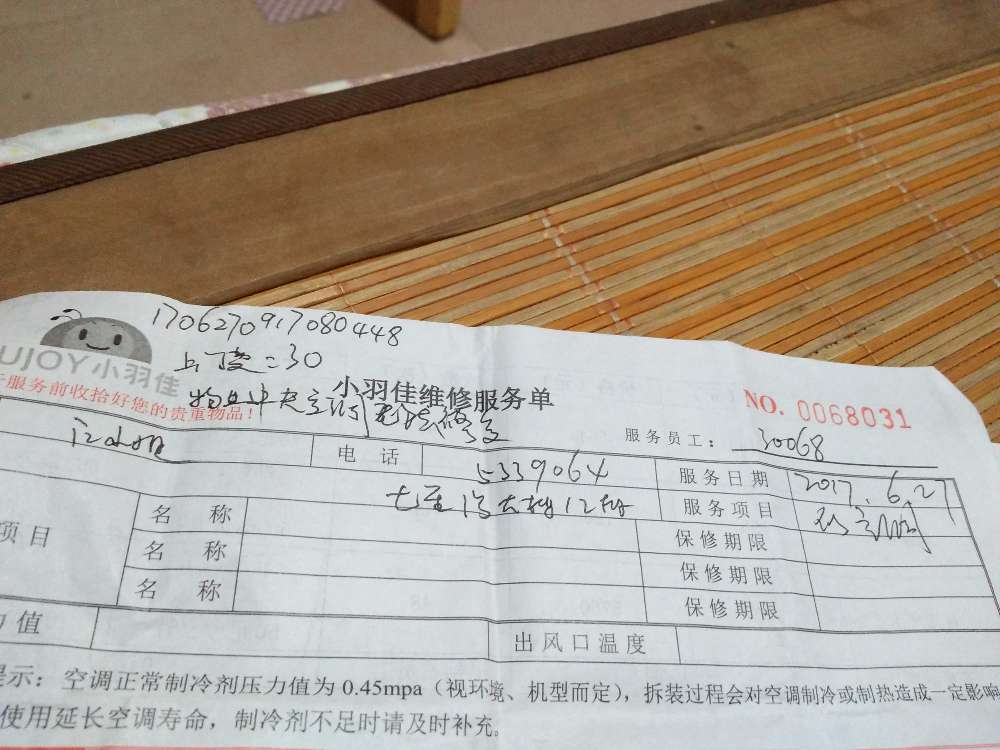 170627091708​0448
UJOY小羽佳
服务前收拾好您的贵重物品！
小羽佳维修服务单
NO. 0068031
服务员工： 30068
电 话 5339064 服务日期 2017.6.27
服务项目
项目 名 称 保修期限
名 称 保修期限
名 称 保修期限
力值 出风口温度
提示：空调正常制冷剂压力值为0.45mpa（视环境、机型而定），拆装过程会对空调制冷或制热造成一定影响
使用延长空调寿命，制冷剂不足时请及时补充。